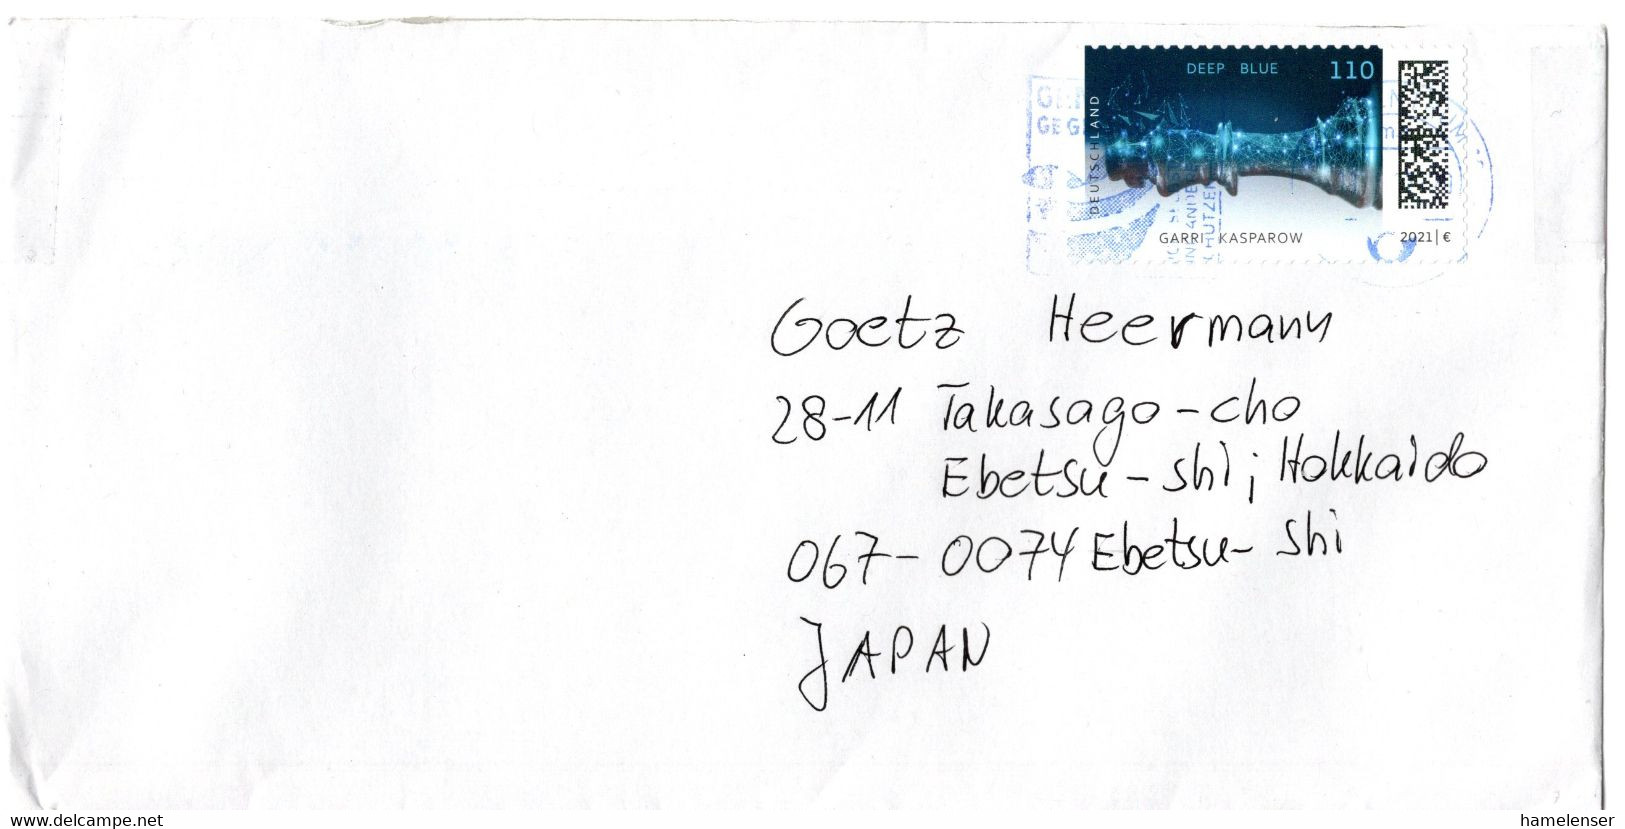 DEEP BLUE 110
DEUTSCHLAND
GARRI KASPAROW 2021 | €
Goetz Heermann
28-11 Takasago-cho
Ebetsu-shi; Hokkaido
067-0074 Ebetsu-shi
JAPAN
www.delcampe.net
hamelenser